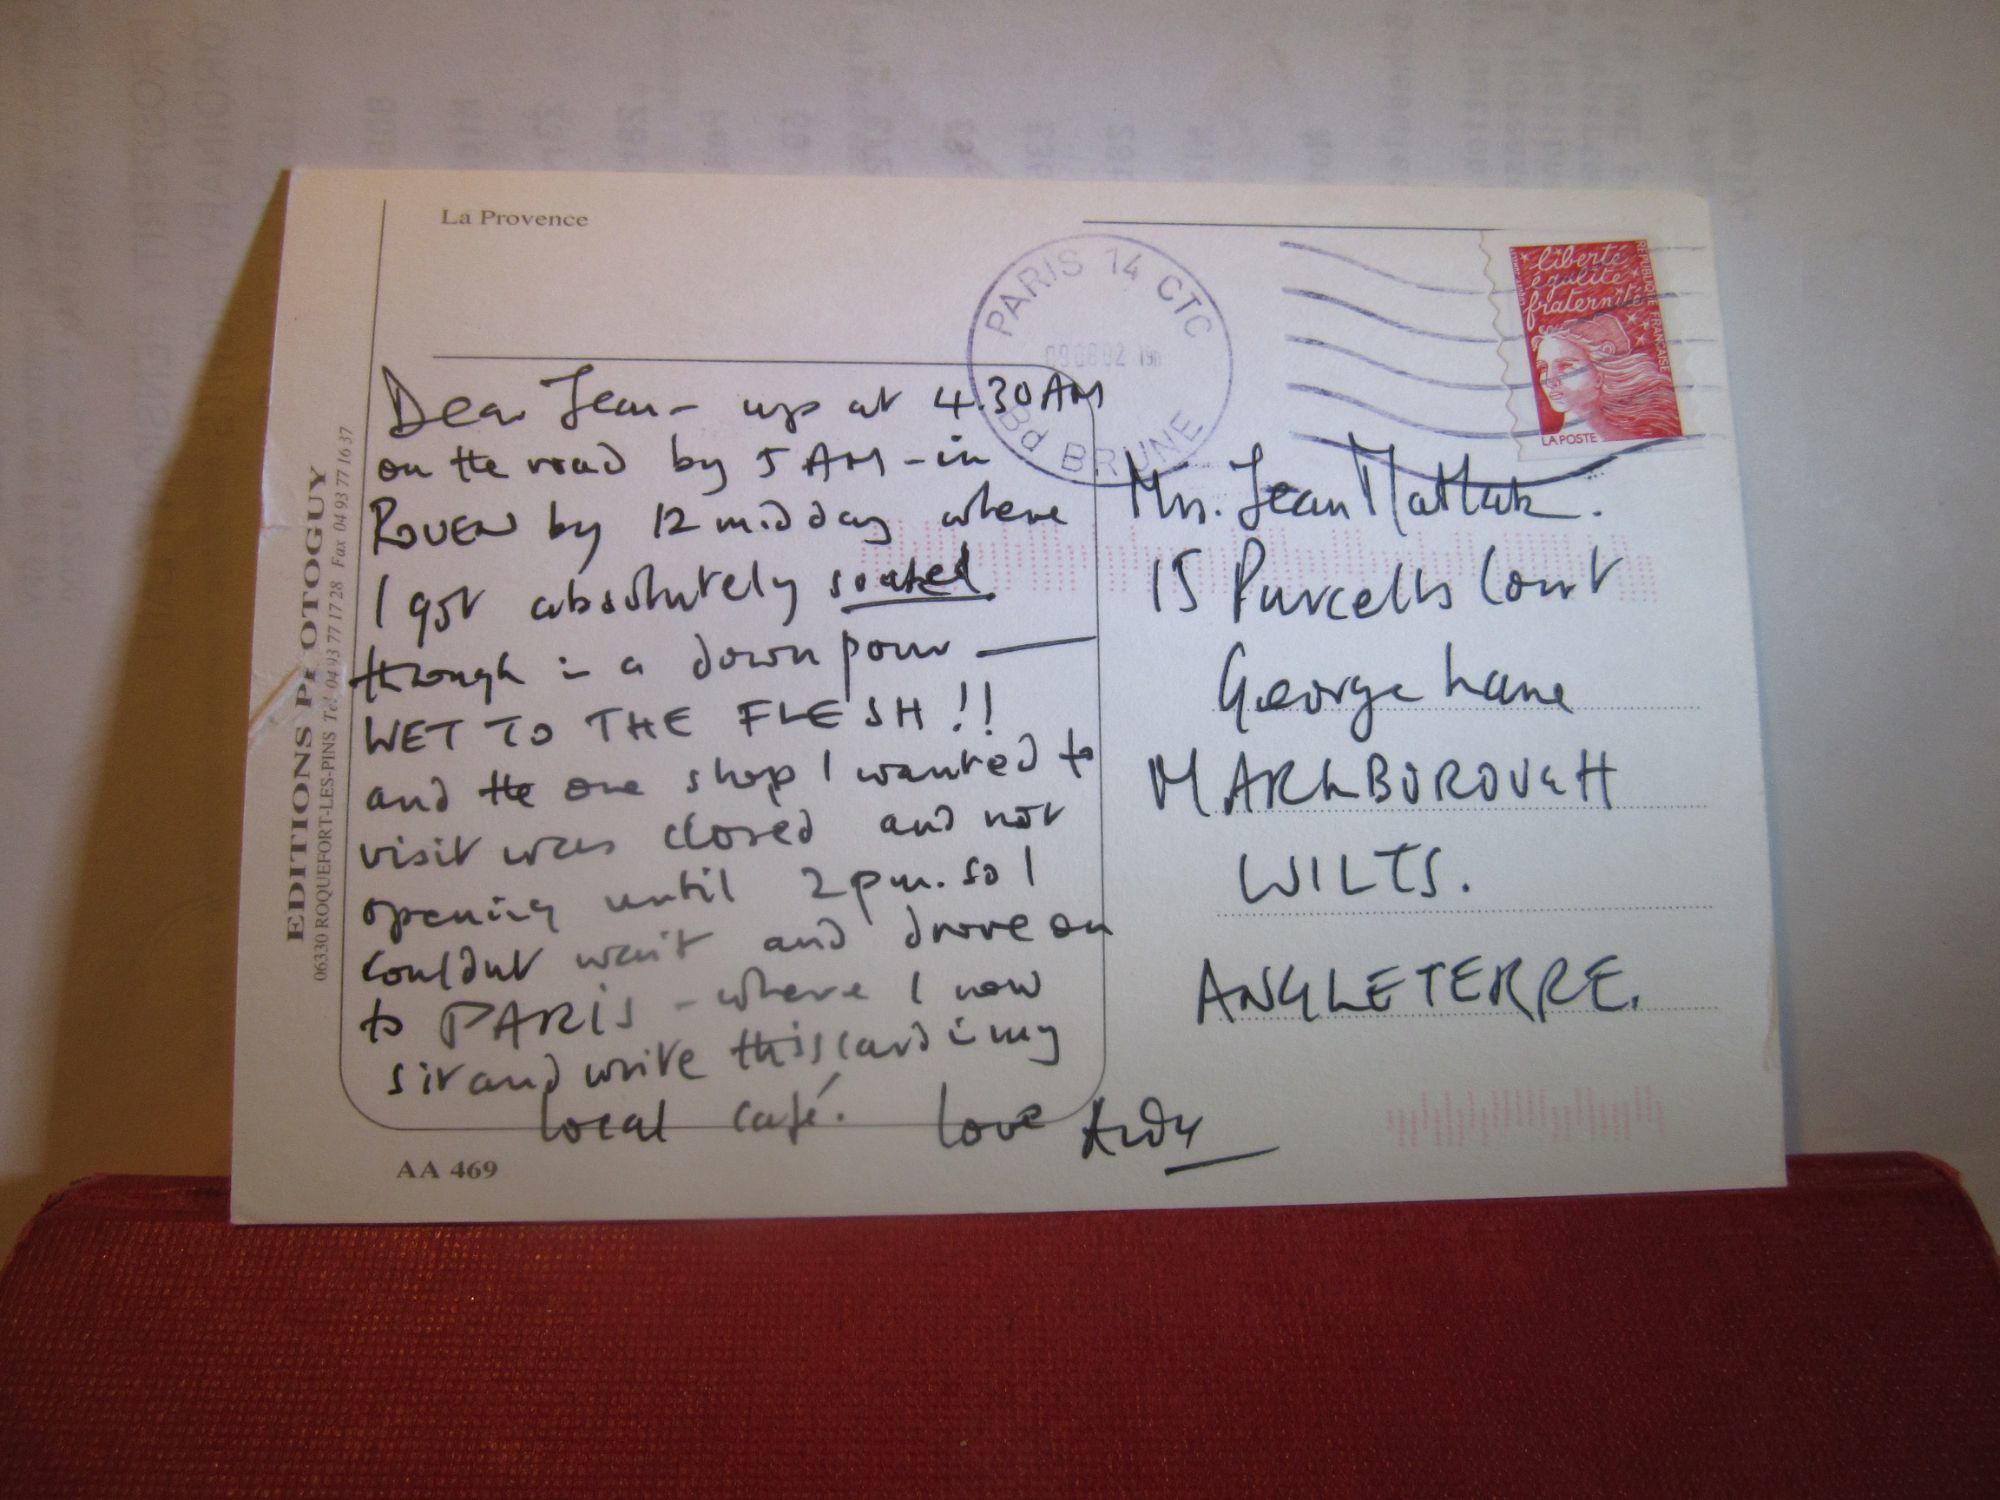 La Provence
PARIS 14 CTC
090802 19H
Bd BRUNE
liberté
égalité
fraternité
RÉPUBLIQUE FRANÇAISE
LA POSTE
Dear Jean – up at 4.30AM
on the road by 5 AM – in
ROUEN by 12 midday where
I got absolutely soaked
through in a down pour —
WET TO THE FLESH!!
and the one shop I wanted to
visit was closed and not
opening until 2pm. so I
couldnt wait and drove on
to PARIS – where I now
sit and write this card in my
local café. love Andy
Mrs. Jean Matlak.
15 Purcells Court
George Lane
MARLBOROUGH
WILTS.
ANGLETERRE.
EDITIONS PHOTOGUY
06330 ROQUEFORT-LES-PINS Tel 04 93 77 17 28 Fax 04 93 77 16 37
AA 469